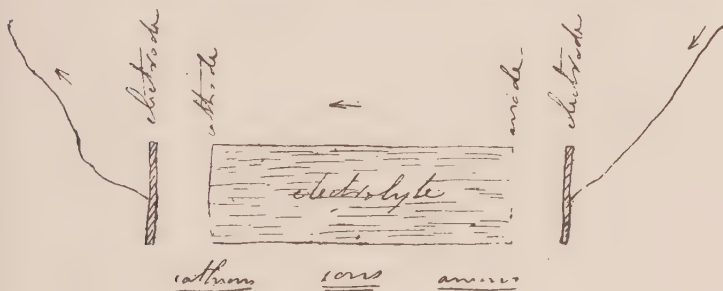 electrode
cathode
anode
electrode
electrolyte
cathions ions anions